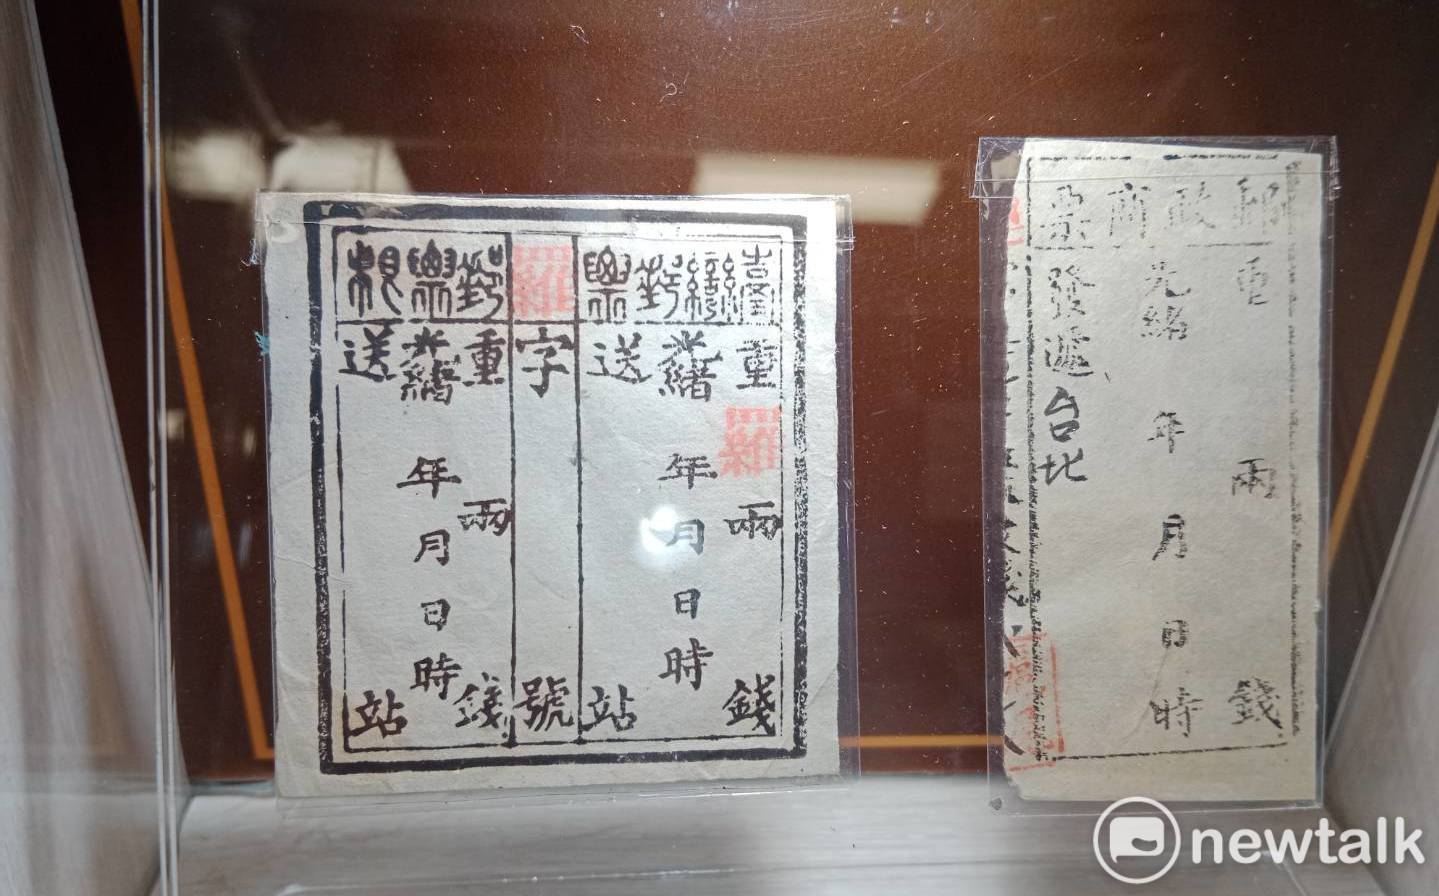 臺灣郵票
重 羅 兩 錢
光緒 年 月 日 時
送 站
羅
字 號
郵票根
重 兩 錢
光緒 年 月 日 時
送 站
郵政商票
重 兩 錢
光緒 年 月 日 時
發遞台北
newtalk